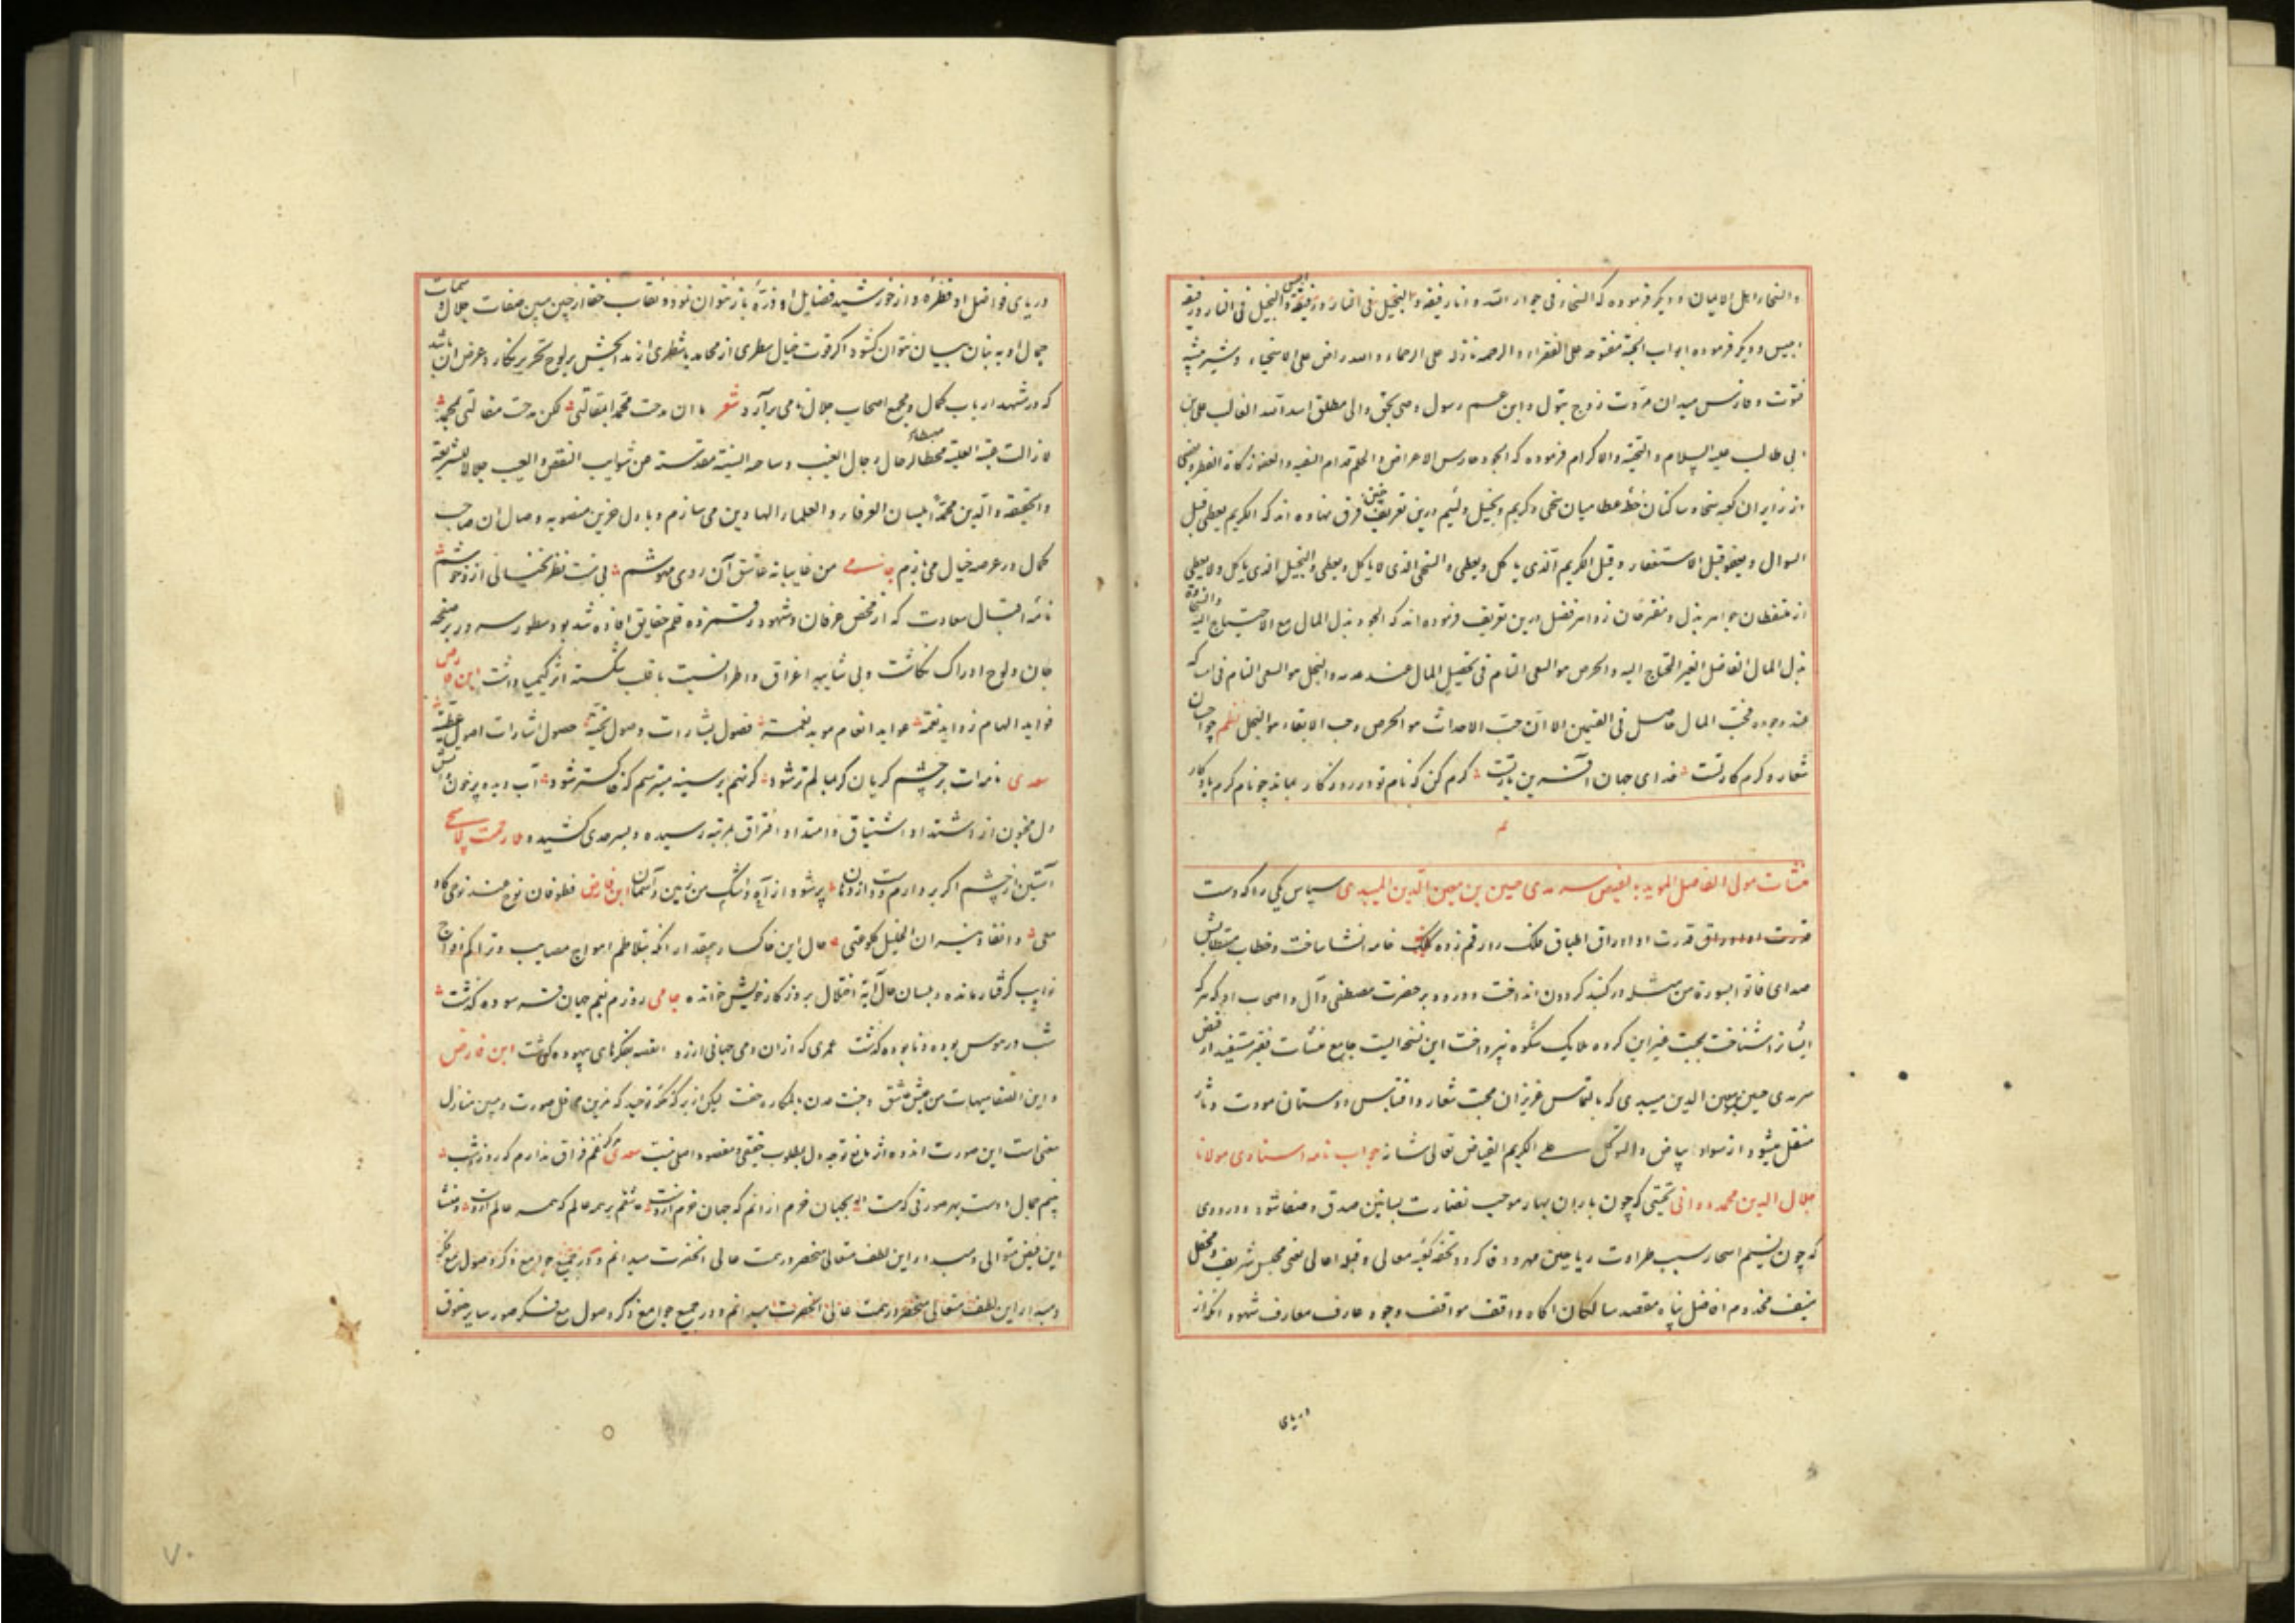 و السخا راهل الایمان و دیگر فرموده که السخی فی جوار الله و انا رفیقه و البخیل فی النار و رفیقه
ابلیس و دیگر فرموده ابواب الجنة مفتوحه علی الفقراء و الرحمه نازله علی الرحماء و الله راض علی الاسخیاء و شیر بیشه
فتوت و فارس میدان مروت زوج بتول و ابن عم رسول وصی بحق والی مطلق اسد الله الغالب علی بن
ابی طالب علیه السلام و التحیة و الاکرام فرموده که الجود حارس الاعراض و الحلم فدام السفیه و العفو زکاة الظفر و بعضی
از زایران کعبه سخی و ساکنان خطه عطا میان سخی و کریم و بخیل و لئیم درین تعریف چنین فرق نهاده اند که الکریم یعطی قبل
السوال و یعفو قبل الاستغفار و قیل الکریم الذی یاکل و یعطی و السخی الذی لا یاکل و یعطی و البخیل الذی یاکل و لا یعطی
از ملتقطان جواهر بذل و زواهر فضل درین تعریف فرموده اند که الجود بذل المال مع الاحتیاج الیه و السخاوة
بذل المال الفاضل الغیر المحتاج الیه و الحرص هو السعی التام فی تحصیل المال عند عدمه و البخل هو السعی التام فی امساکه
عند وجوده فحب المال حاصل فی القسمین الا ان حب الاحداث هو الحرص و حب الابقاء هو البخل نظم چو احسان
شعار و کرم کار تست خدای جهان آفرین یار تست کرم کن که نام تو در روزگار بماند چو نام کرم یادکار
منشآت مولی الفاضل الموید بفیض سرمدی حسین بن معین الدین المیبدی سپاس یکی را که دست
قدرت او اوراق اطباق فلک را رقم زده کلک خامه انشا ساخت و خطاب مستطابش
صدای فاتوا بسورة من مثله در کنبد کردون انداخت و درود بر حضرت مصطفی و آل و اصحاب او که هر که
ایشانرا شناخت بمحبت غیر این کروه ملایک شکوه نپرداخت این نسخه ایست جامع منشآت فقیر مستفید از فیض
سرمدی حسین بن معین الدین میبدی که بالتماس عزیزان محبت شعار و اقتباس دوستان مودت دثار
منقل میشود از سواد به بیاض و التوکل علی الکریم الفیاض تعالی شانه جواب نامه استادی مولانا
جلال الدین محمد دوانی تحیتی که چون باران بهار موجب نضارت بساتین صدق و صفا شود و درودی
که چون نسیم اسحار سبب طراوت ریاحین مهر و وفا کردد تحفه کعبه معالی و قبله اعالی اعنی مجلس شریف و محفل
منیف مخدوم افاضل پناه مقصد سالکان اکاه واقف مواقف وجود عارف معارف شهود انکه از
دریای
دریای فواضل او قطره و از خورشید فضایل او ذره باز نتوان نمود و نقاب خفا از جبین مبین صفات جلال و سمات
جمال او به بنان بیان نتوان کشود اکر قوت خیال سطری از محامد یا شطری از مدایحش بر لوح تحریر نکارد غرض آن باشد
که در مشهد ارباب کمال و مجمع اصحاب جلال نامی برآرد شعر ما ان مدحت محمدا بمقالتی لکن مدحت مقالتی بمحمد
لا زالت عتبه العلیه محطا لرحال رجال الغیب و ساحه السنیه مقدسة عن شوایب النقص و العیب جلالا للشریعة
و الحقیقه و الدین محمدا بلسان العرفاء و العلماء الهادین می سازم و با دل حزین منصوبه وصال آن صاحب
کمال در عرصه خیال می بازم جامی من غایبانه عاشق آن روی مهوشم بی منت نظر بخیالی ازو خوشم
نامه اقبال سعادت که از محض عرفان و شهود رقمزده قلم حقایق افاده شده بود سطور سرور بر صفحه
جان و لوح ادراک نکاشت و بی شایبه اغراق و اطرا نسبت با قلب شکسته اثر کیمیا داشت ابن فارض
فواید الهام زواید نعمة عواید انعام موید نعمة فصول بشارات وصول تحیة حصول اشارات اصول عطیة
سعدی نامه ات بر چشم کریان کر نهالم تر شود کر نهم بر سینه میترسم که خاکستر شود آب دیده پر خون و آتش
دل محزون از اشتداد اشتیاق و امتداد افتراق بمرتبه رسیده و بسرحدی کشیده
آستین از چشم اکر بردارم و پر شود از آه و اشک من زمین و آسمان ابن فارض فطوفان نوح عند نوحی کادمعی
و ایقاد نیران الخلیل کلوعتی حال این خاکسار بمقدار آنکه بتلاطم امواج مصایب و تراکم افواج
نوایب کرفتار مانده و بلسان حال آیه اختلال بروز کار خویش خوانده جامی روزم بغم جهان فرسوده کذشت
شب در هوس بوده و نابوده کذشت عمری که ازان دمی جهانی ارزد القصه بفکرهای بیهوده کذشت ابن فارض
و این الصفا هیهات من عیش عاشق و جنة عدن بالمکاره حفت لیکن از برکه توحید که مزین محافل صورت و مبین منازل
معنی است این صورت اندوه اثر مانع توجه دل بمطلوب حقیقی و مقصود اصلی نیست سعدی غم فراق ندارم که روز و شب
بینم جمال دوست بهر صورتی که هست بجهان خرم از آنم که جهان خرم ازوست عاشقم بر همه عالم که همه عالم ازوست و منشأ
این فیض متوالی و مبدا این لطف متعالی منحصر در همت عالی آنحضرت میدانم و در جمیع جوامع ذکر و صول مع فکر
و مبدا این لطف متعالی منحصر در همت عالی آنحضرت میدانم و در جمیع جوامع ذکر و صول مع فکر صور سایر حقوق
۷۰